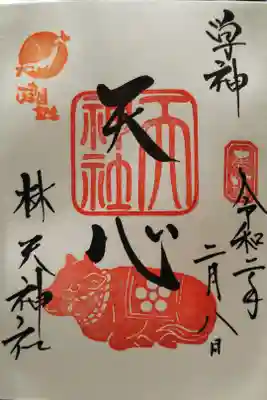 学神
令和二年
二月八日
天心
天神社
林天神社